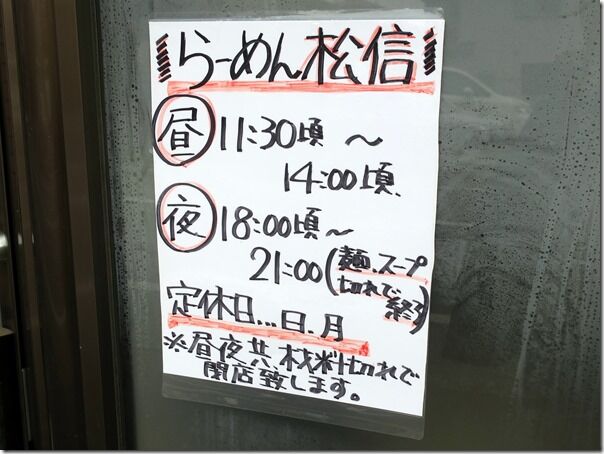 らーめん松信
昼 11:30頃 ～
14:00頃、
夜 18:00頃～
21:00(麺、スープ
切れで
終了)
定休日…日、月
※昼夜共、材料切れで
閉店致します。